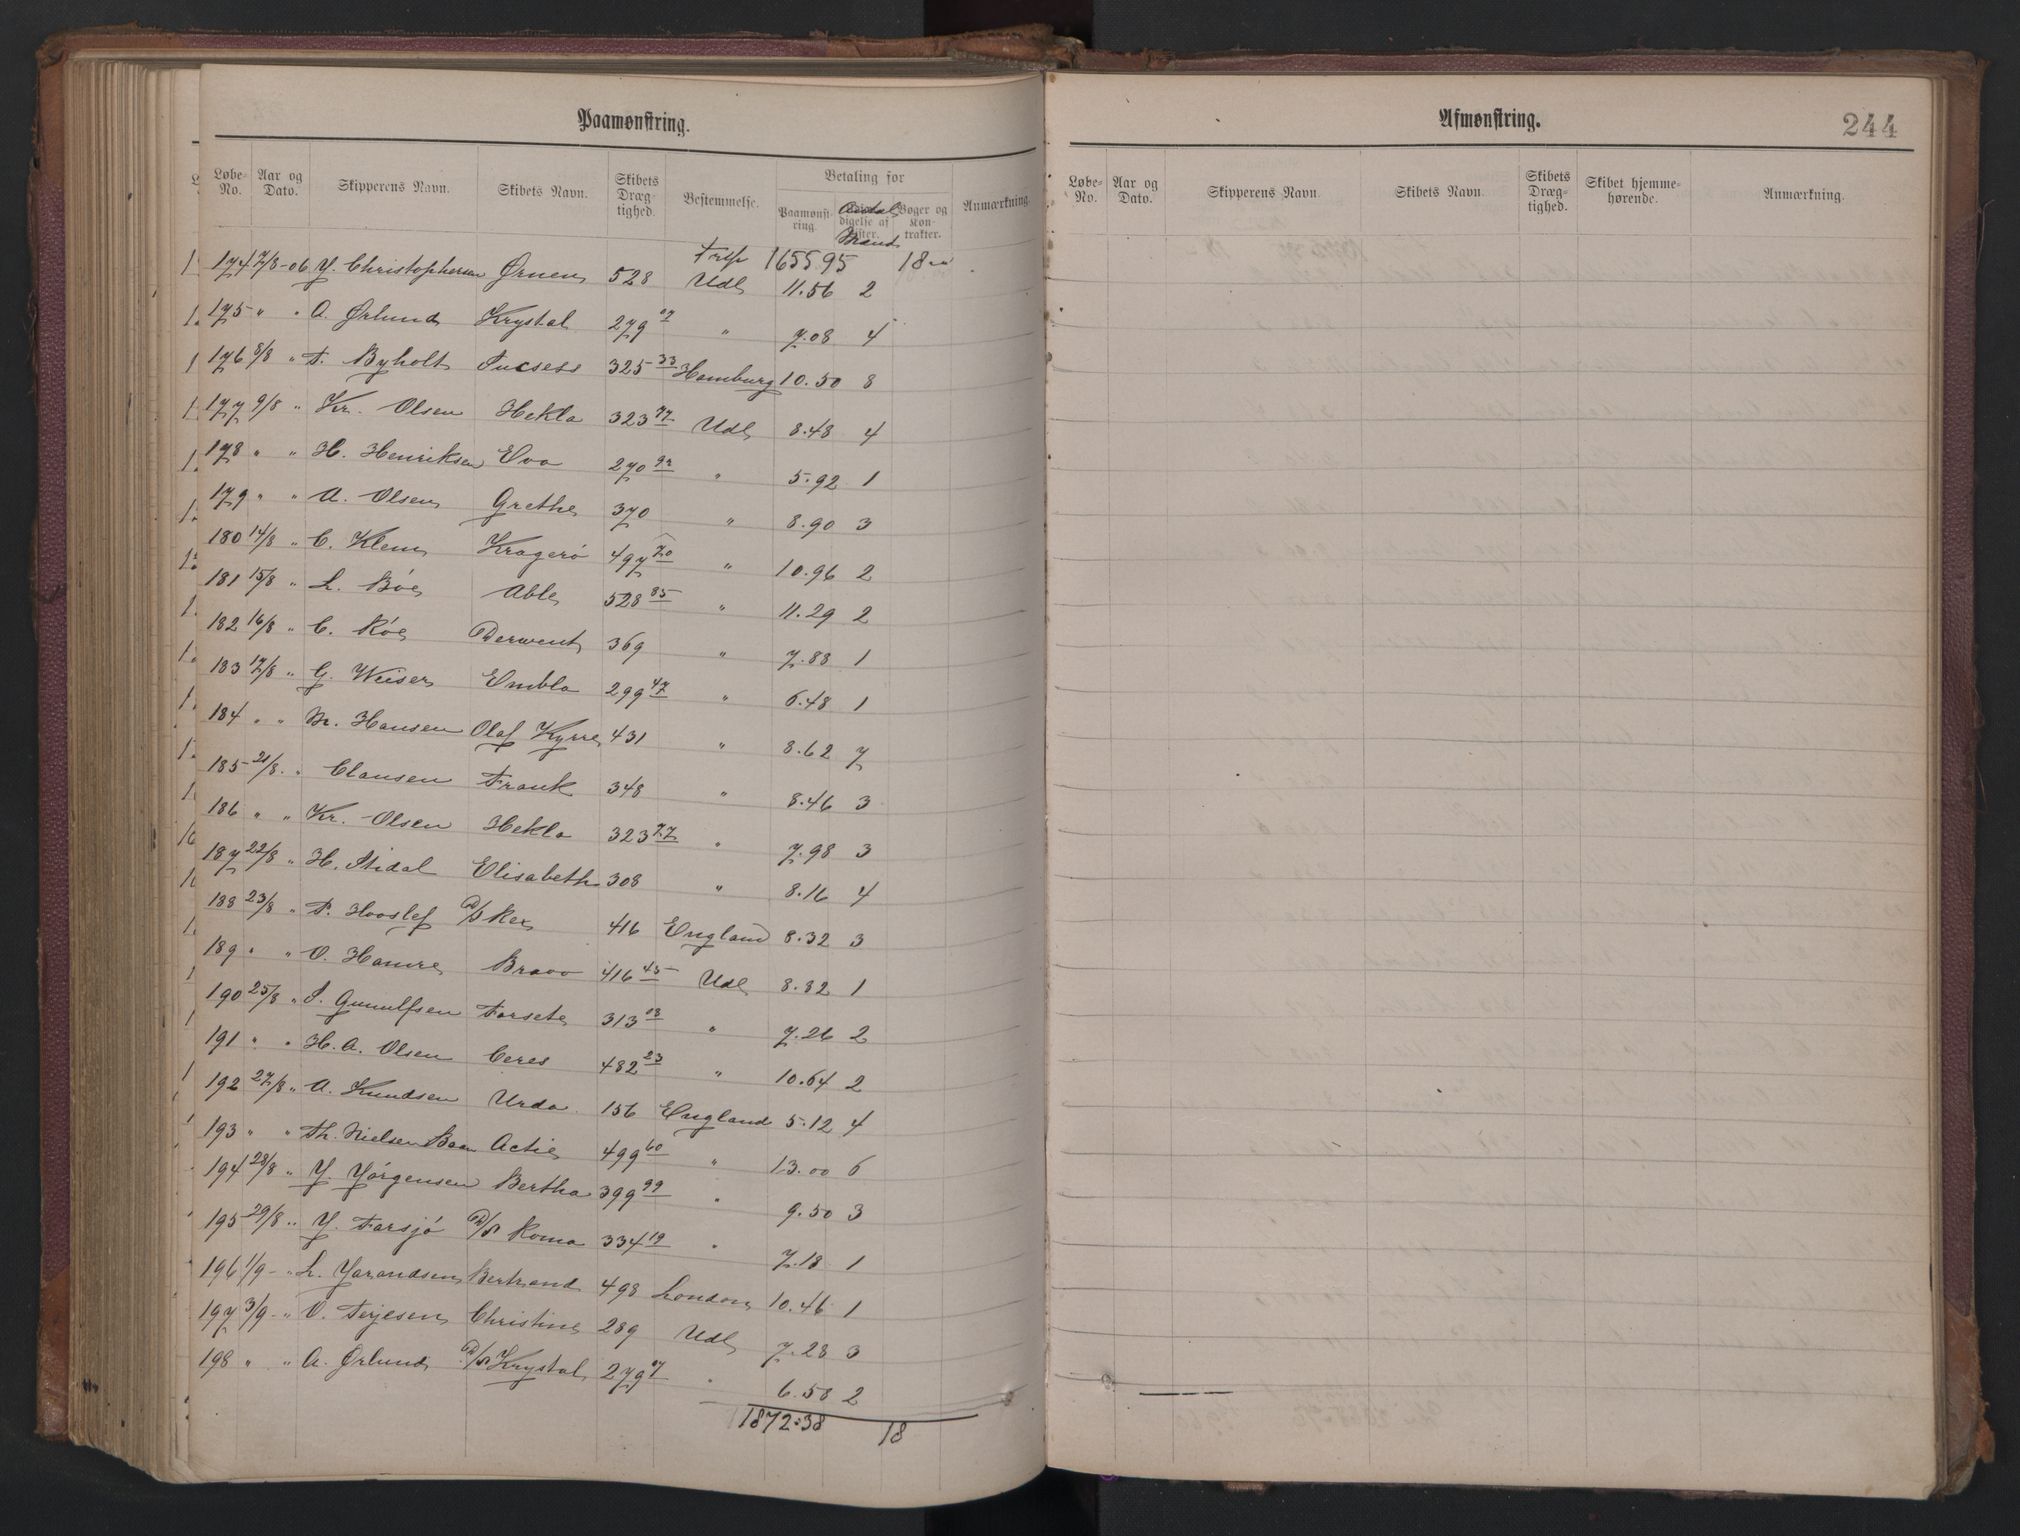 Paamønstring.
Løbe-No. Aar og Dato. Skipperens Navn. Skibets Navn. Skibets Dræg-tighed. Bestemmelse. Betaling for Paamønst-ring. Antal Mand Bøger og Kon-trakter. Anmærkning.
Trsp 1655.95 18 "
174 7/8-06 J. Christophersen Ørnen 528 Udl 11.56 2
175 " " A. Ørlund Krystal 279 07 " 7.08 4
176 8/8 " T. Byholt Sucsess 325 33 Hamburg 10.50 8
177 9/8 " Kr. Olsen Hekla 323 77 Udl 8.48 4
178 " " H. Henriksen Eva 270 92 " 5.92 1
179 " " A. Olsen Grethe 370 " 8.90 3
180 14/8 " C. Klem Kragerø 497 70 " 10.96 2
181 15/8 " L. Bøe Able 528 85 " 11.29 2
182 16/8 " C. Røe Derwent 369 " 7.88 1
183 17/8 " G. Weiser Embla 299 47 " 6.48 1
184 " " M. Hansen Olaf Kyrre 431 " 8.62 7
185 21/8 " Clausen Frank 348 " 8.46 3
186 " " Kr. Olsen Hekla 323 77 " 7.98 3
187 22/8 " H. Stidal Elisabeth 308 " 8.16 4
188 23/8 " T. Hooslef D/S Rex 416 England 8.32 3
189 " " O. Hamre Bravo 416 45 Udl 8.82 1
190 25/8 " S. Gunulfsen Forsete 313 08 " 7.26 2
191 " " H. A. Olsen Ceres 482 23 " 10.64 2
192 27/8 " A. Knudsen Urda 156 England 5.12 4
193 " " Th. Nielsen Baan Actie 499 60 " 13.00 6
194 28/8 " J. Jørgensen Bertha 399 99 " 9.50 3
195 29/8 " J. Farsjø D/S Roma 334 19 " 7.18 1
196 1/9 - " L. Jarandsen Bertrand 498 London 10.46 1
197 3/9 - " O. Terjesen Christine 289 Udl 7.28 3
198 " " A. Ørlund D/S Krystal 279 07 " 6.58 2
1872:38 18
Afmønstring.
244
Løbe-No. Aar og Dato. Skipperens Navn. Skibets Navn. Skibets Dræg-tighed. Skibet hjemme-hørende. Anmærkning.